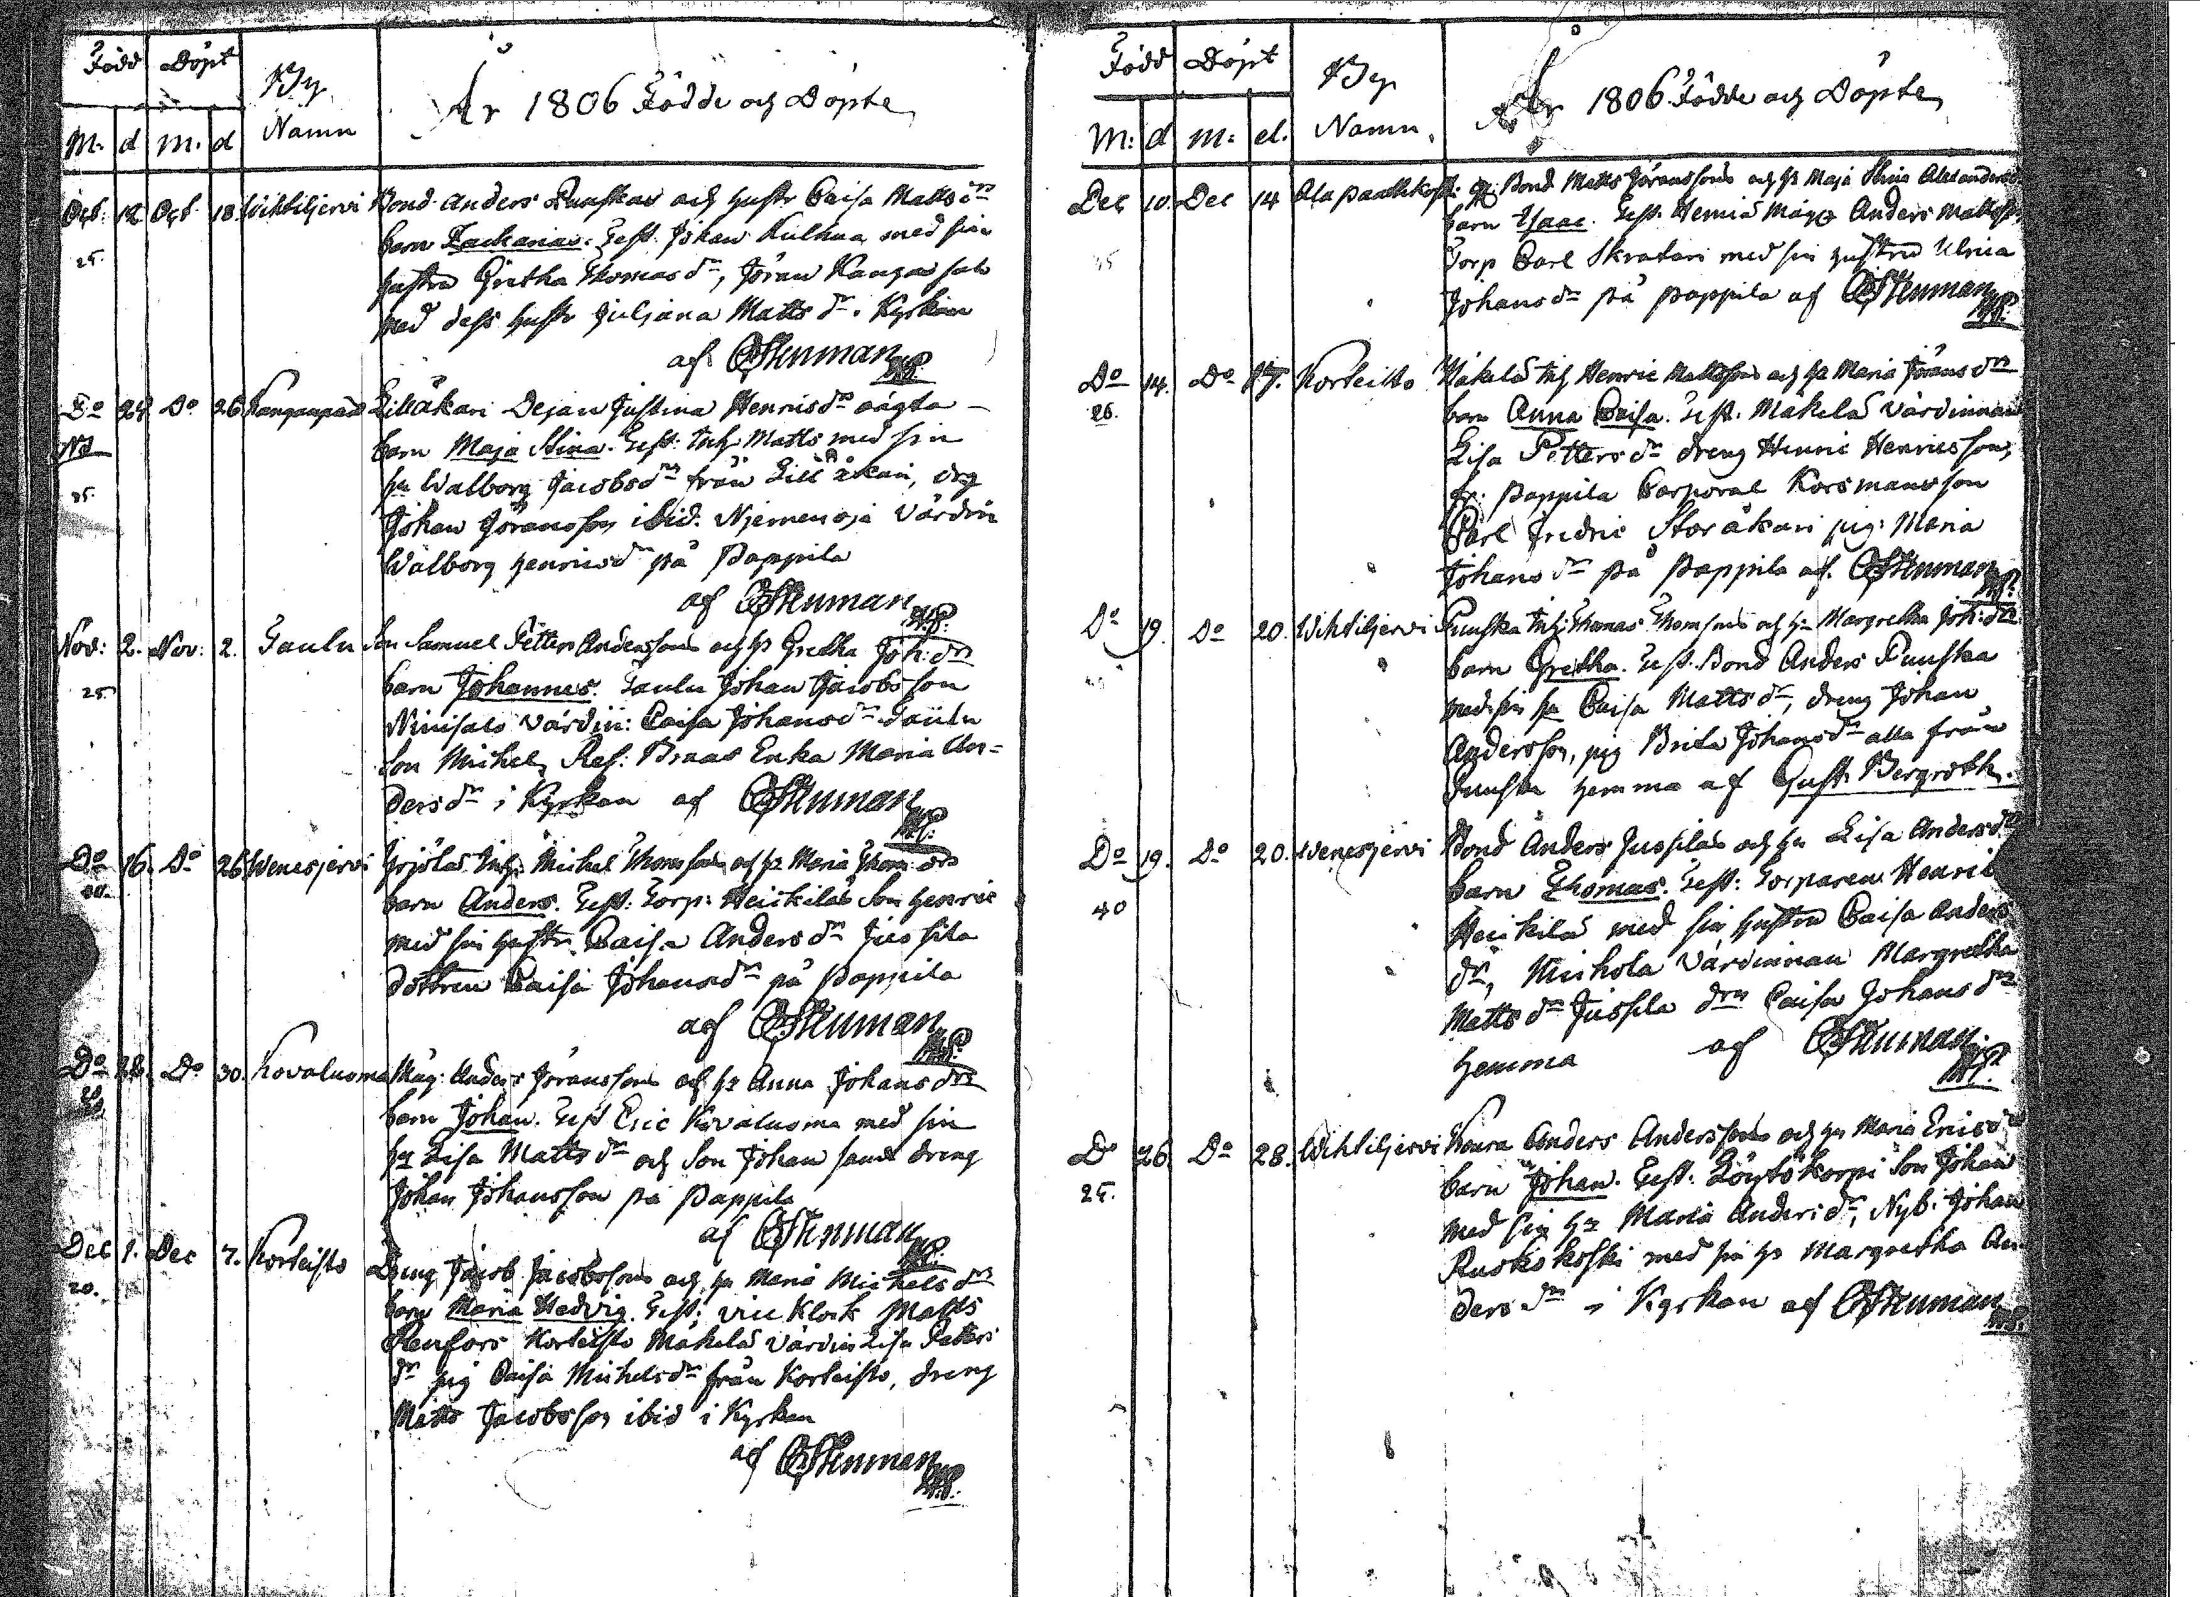 Född Döpt By Namn År 1806 Födde och Döpte
M: d M: d
Oct: 12. Oct 18. Wihtiljervi Bond. Anders Puuskas och hustr Caisa Matts dr
25. barn Zacharias. Test. Johan Kulhua med sin
hustru Gretha Thomas dr, Jöran Kangasalo
med dess hustr Juliana Matts dr. Kyrkan
af CStenman
Do 24. Do 26. Kanganpää Lillåkari Dejan Justina Henrics dr oägta
barn Maja Stina. Test: Inh: Matts med sin
35. hu Walborg Jacobs dr från Lillåkari, drg
Johan Jöransson ibid. Niemenoja värdin
Walborg Henrics dr på Pappila
af CStenman
Nov: 2. Nov: 2. Taulu Son Samuel Petter Anderssons och hu Gretha Joh: dr
25. barn Johannes. Taulu Johan Jacobsson
Niinisalo värdin: Caisa Johans dr Taulu
Son Michel, Enka Maria An-
ders dr i Kyrkan af CStenman
Do 16. Do 26. Wenesjervi Yrjölas Inh: Michel Thomssons och hu Maria Thom: dr
barn Anders. Test: Torp: Heickilas Son Henric
med sin hustr Caisa Anders dr Jussila
dottren Caisa Johans dr på Pappila
af CStenman
Do 28. Do 30. Kovaluoma Måg: Anders Jöranssons och hu Anna Johans dr
barn Johan. Test Eric Kovaluoma med sin
hu Lisa Matts dr och Son Johan samt dreng
Johan Johansson på Pappila
af CStenman
Dec 1. Dec 7. Korteisto Dreng Jacob Jacobssons och hu Maria Michels dr
20. barn Maria Hedvig. Test: vice Klock Matts
Renfors Korteisto Mäkelä värdin Lisa Petters
dr pig Caisa Michels dr från Korteisto, dreng
Matts Jacobsson ibid i Kyrkan
af CStenman
Född Döpt By Namn, År 1806. Födde och Döpte
M: d M: d.
Dec 10. Dec 14 Ala Paattikoski Bond Matts Jöranssons och hu Maja Stina Alexanders dr
barn Isaac. Test. Hemiä Måg Anders Mattsson
Torp Carl Skratari med sin hustru Ulrica
Johans dr på Pappila af CStenman
Do 14. Do 17. Korteisto Mäkelä Inh Henric Mattssons och hu Maria Jörans dr
26. barn Anna Caisa. Test. Mäkelä värdinnan
Lisa Petters dr dreng Henric Henricsson
fr: Pappila Corporal Korsmansson
Carl Fredric Storåkari pig: Maria
Johans dr på Pappila af. CStenman
Do 19. Do 20. Wihtiljervi Puuska Inh: Thomas Thomssons och hu Margretha Joh: dr
barn Gretha. Test. Bond Anders Puuska
med sin hu Caisa Matts dr, dreng Johan
Andersson, pig Brita Johans dr alla från
Puuska hemma af Gust: Bergroth.
Do 19. Do 20. Wenesjervi Bond Anders Jussilas och hu Lisa Anders dr
40 barn Thomas. Test: Torparen Henric
Heickilä med sin hustru Caisa Anders
dr, Michola värdinnan Margretha
Matts dr Jussila drn Caisa Johans dr
hemma af CStenman
Do 26 Do 28. Wihtiljervi Koura Anders Anderssons och hu Maria Erics dr
25. barn Johan. Test: Löytökorpi Son Johan
med sin hu Maria Anders dr, Nyb. Johan
Ruokokoski med sin hu Margretha An-
ders dr i Kyrkan af CStenman